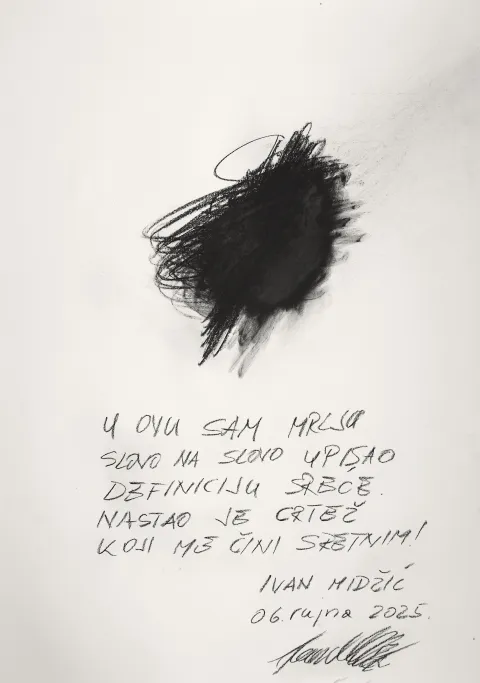 U OVU SAM MRLJU
SLOVO NA SLOVO UPISAO
DEFINICIJU SREĆE.
NASTAO JE CRTEŽ
KOJI ME ČINI SRETNIM!
IVAN MIDŽIĆ
06. rujna 2025.